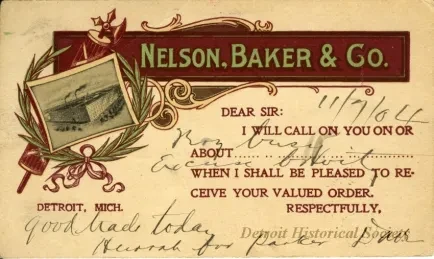 NELSON, BAKER & CO.
11/7/04
DEAR SIR:
I WILL CALL ON YOU ON OR
ABOUT
WHEN I SHALL BE PLEASED TO RE-
CEIVE YOUR VALUED ORDER.
DETROIT, MICH. RESPECTFULLY,
good trade today
Hurrah for Parker
Detroit Historical Society